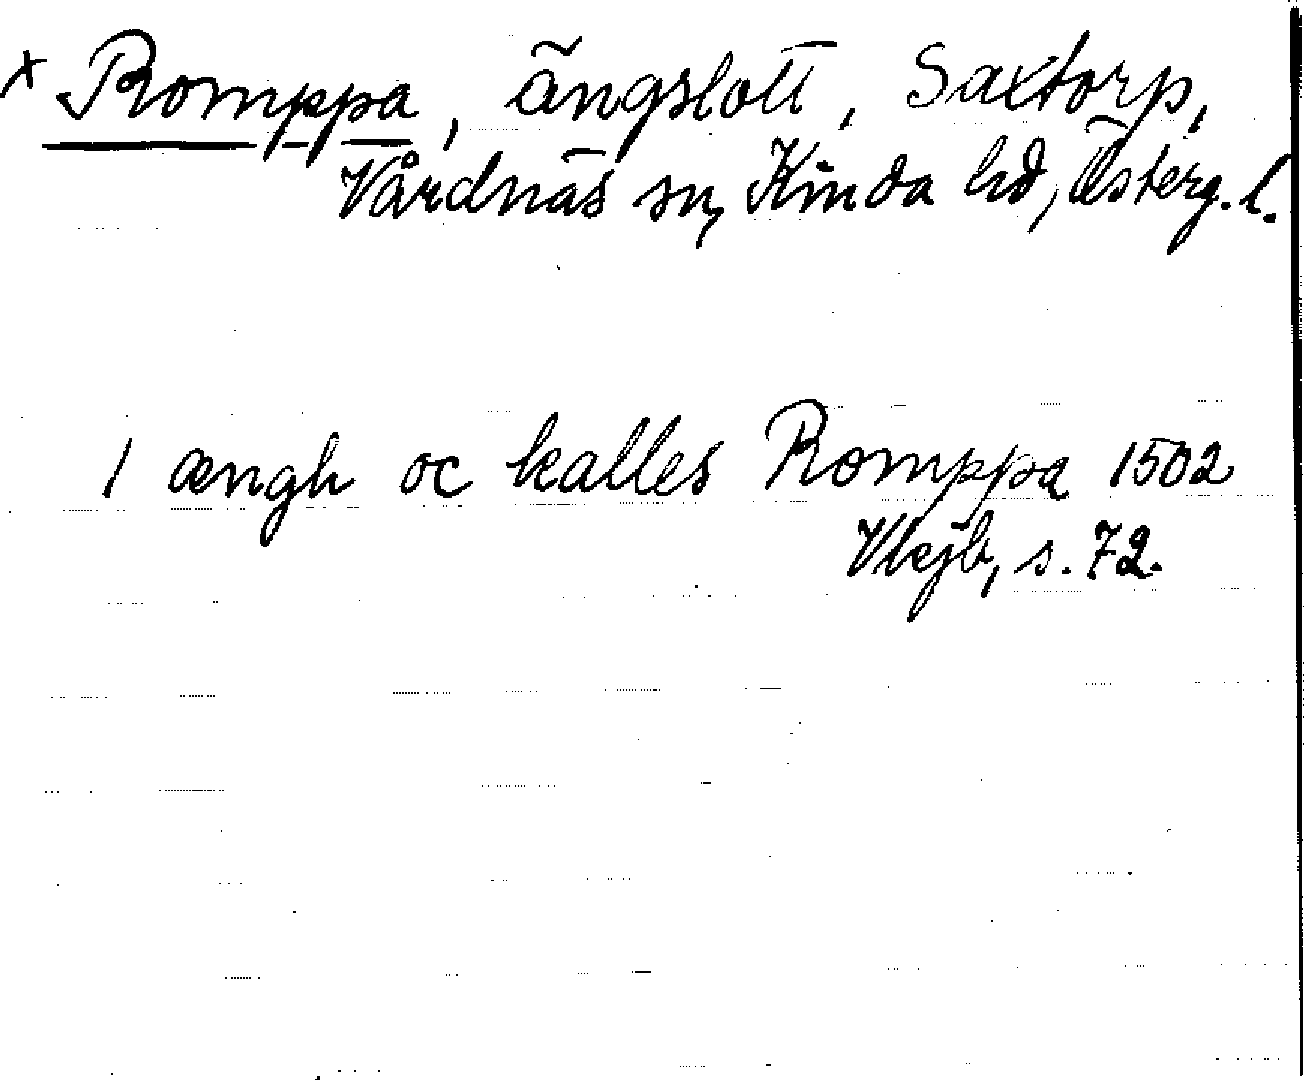 x Romppa, ängslott, Saxtorp,
Vårdnäs sn, Kinda hd, Österg. l.
1 ængh oc kalles Romppa 1502
Vkjb, s. 72.